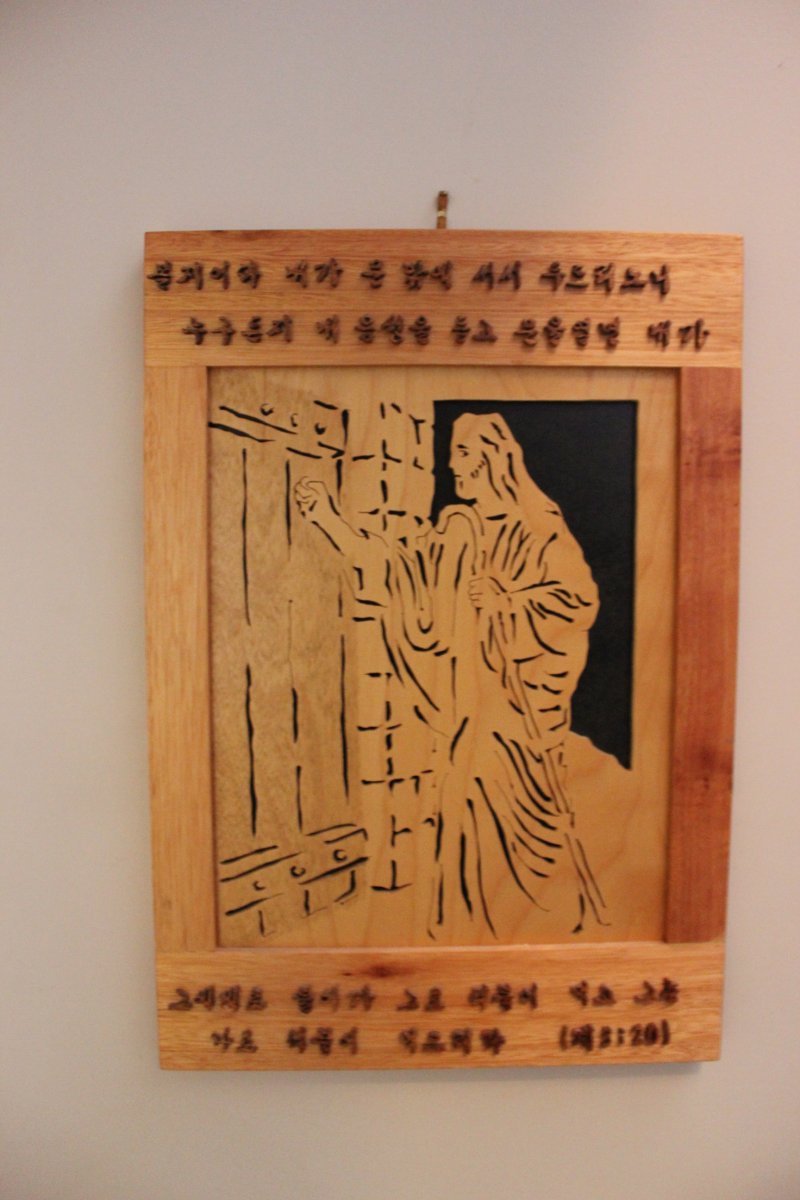 볼지어다 내가 문 밖에 서서 두드리노니
누구든지 내 음성을 듣고 문을열면 내가
그에게로 들어가 그로 더불어 먹고 그는
나로 더불어 먹으리라 (계3:20)